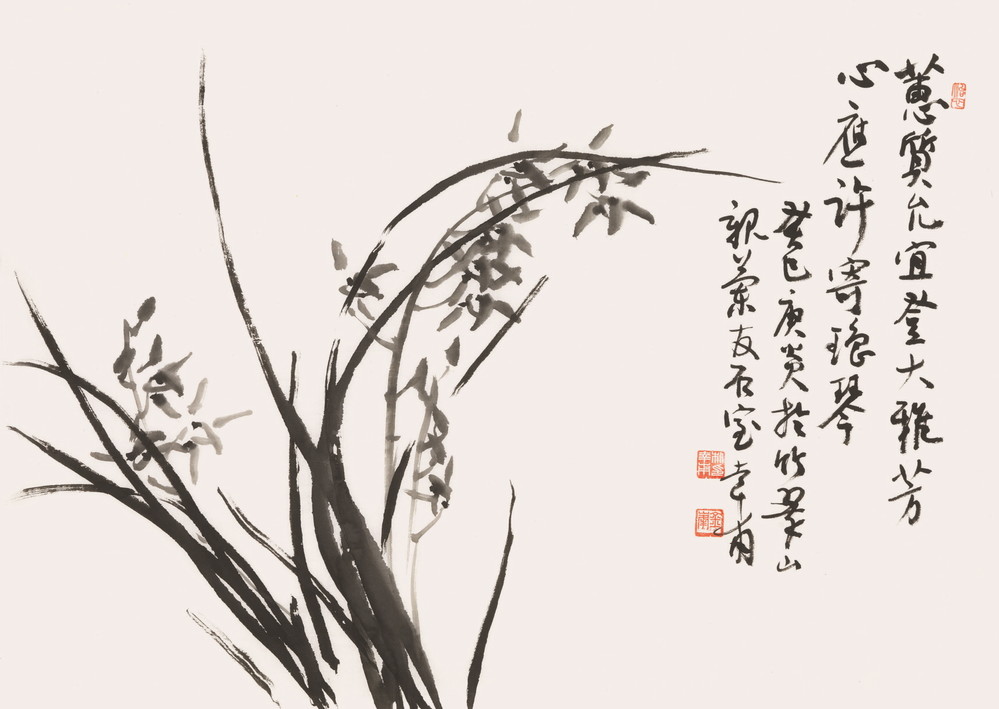 蕙質允宜登大雅芳
心應許寄瑤琴
癸巳庚炎於竹翠山
親蘭友石室幸甫